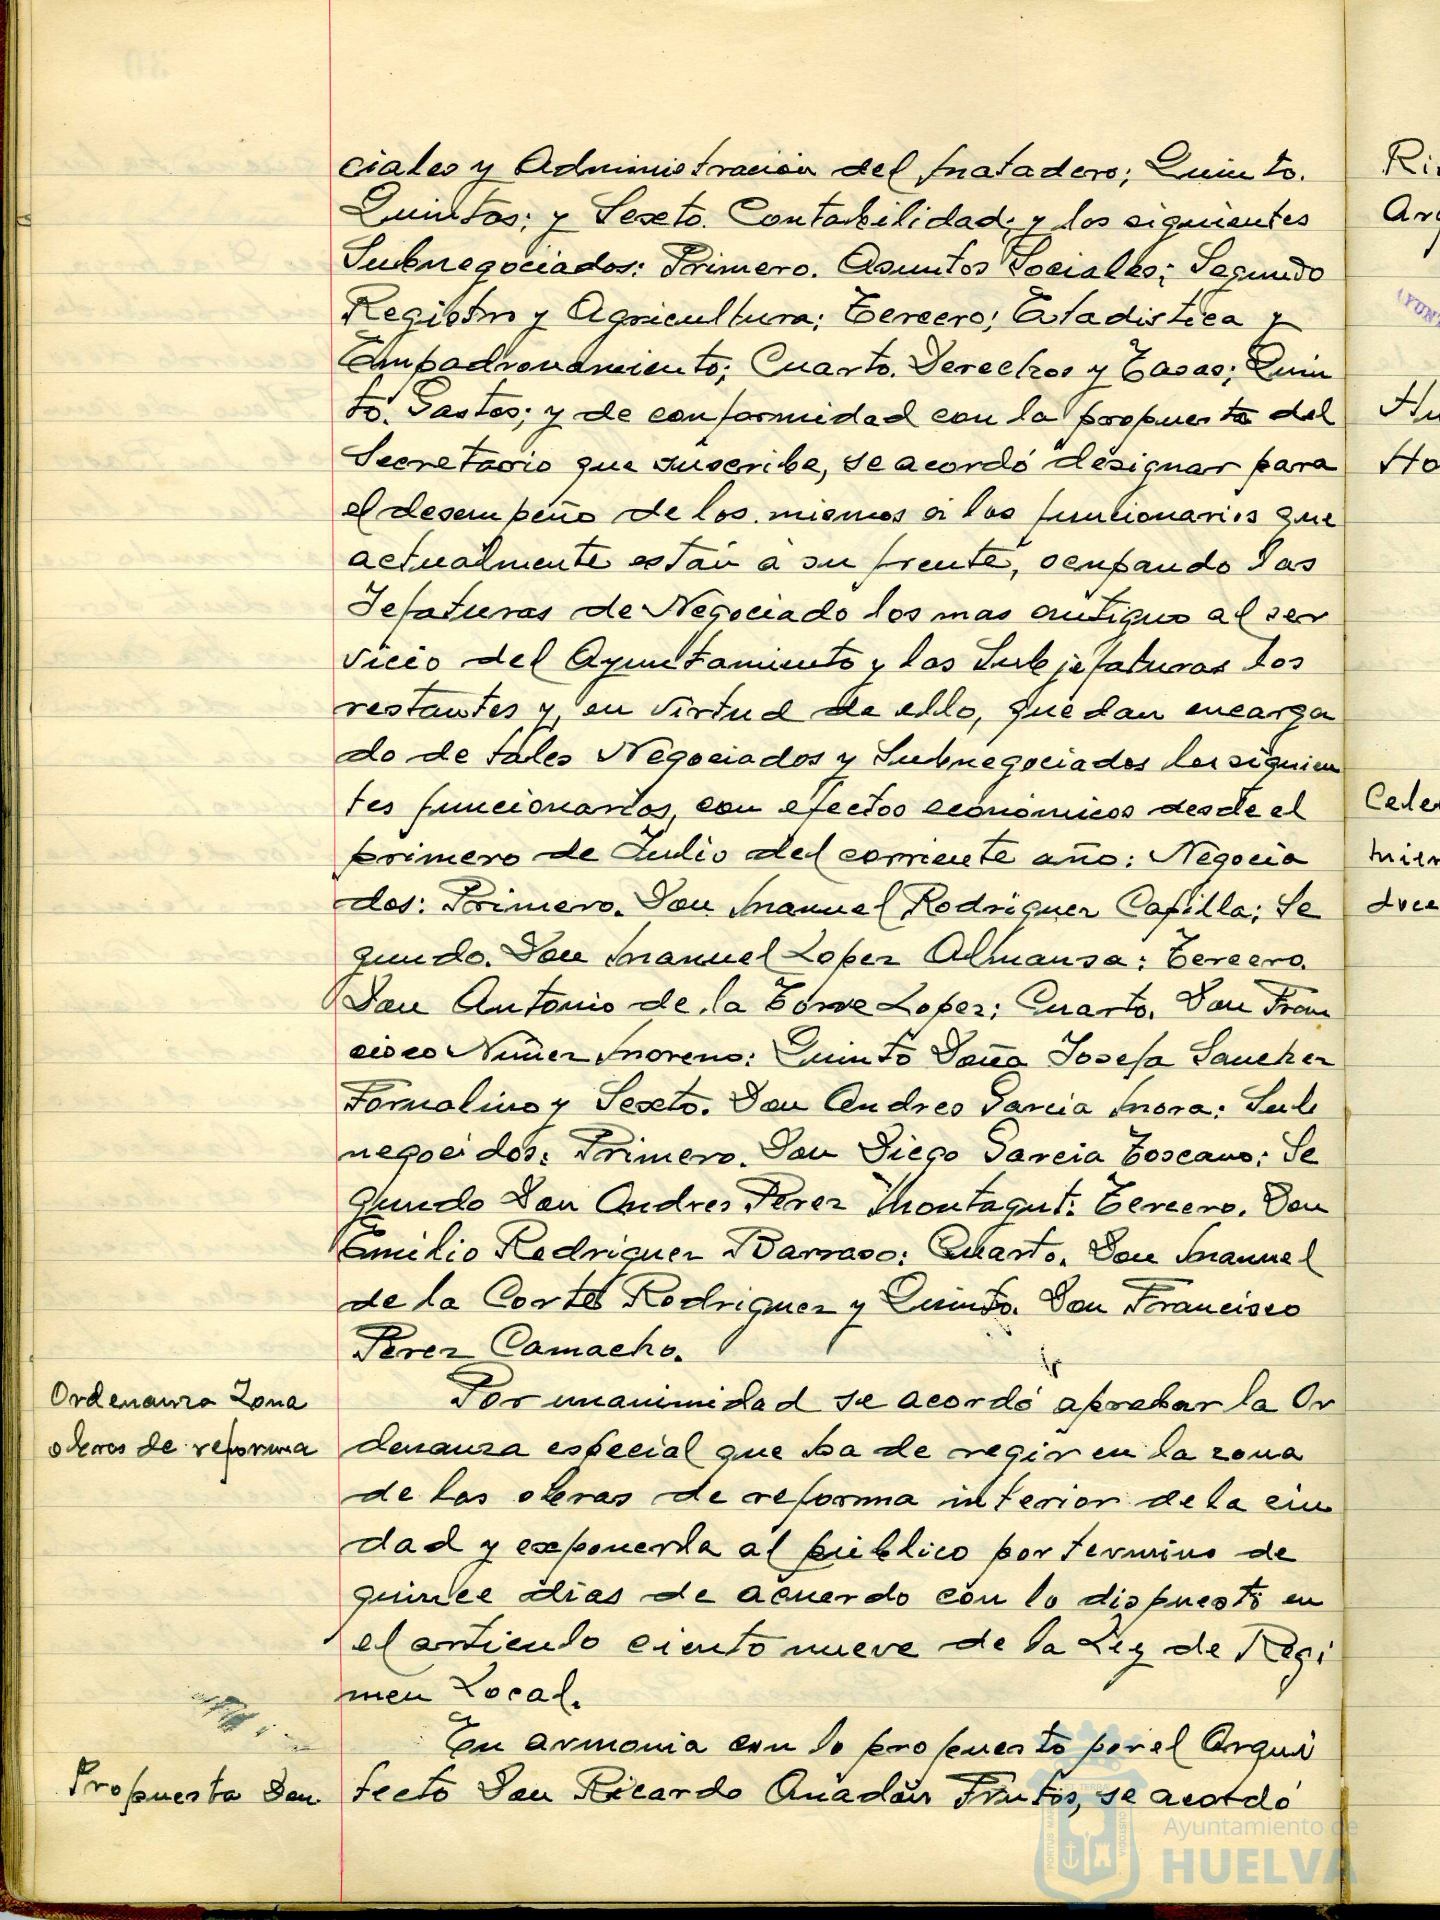 ciales y Administración del Matadero; Quinto.
Quintas; y Sexto. Contabilidad; y los siguientes
Subnegociados: Primero. Asuntos Sociales; Segundo
Registro y Agricultura; Tercero; Estadistica y
Empadronamiento; Cuarto. Derechos y Tasas; Quin
to. Gastos; y de conformidad con la propuesta del
Secretario que suscribe, se acordó designar para
el desempeño de los mismos a los funcionarios que
actualmente están a su frente, ocupando las
Jefaturas de Negociado los mas antiguo al ser
vicio del Ayuntamiento y las Subjefaturas los
restantes y, en virtud de ello, quedan encarga
do de tales Negociados y Subnegociados los siguien
tes funcionarios, con efectos económicos desde el
primero de Julio del corriente año: Negocia
dos: Primero. Don Manuel Rodriguez Capilla; Se
gundo. Don Manuel Lopez Almansa; Tercero.
Don Antonio de la Torre Lopez; Cuarto. Don Fran
cisco Nuñez Moreno; Quinto Doña Josefa Sanchez
Fornalino y Sexto. Don Andres Garcia Mora; Sub
negocidos: Primero. Don Diego Garcia Toscano; Se
gundo Don Andres Perez Montagut; Tercero. Don
Emilio Rodriguez Barraso; Cuarto. Don Manuel
de la Corte Rodriguez y Quinto. Don Francisco
Perez Camacho.
Ordenanza Zona
obras de reforma
Por unanimidad se acordó aprobar la Or
denanza especial que ha de regir en la zona
de las obras de reforma interior de la ciu
dad y exponerla al público por termino de
quince dias de acuerdo con lo dispuesto en
el articulo ciento nueve de la Ley de Regi
men Local.
Propuesta Don
En armonia con lo propuesto por el Arqui
tecto Don Ricardo Anadón Frutos, se acordó
Ayuntamiento de
HUELVA